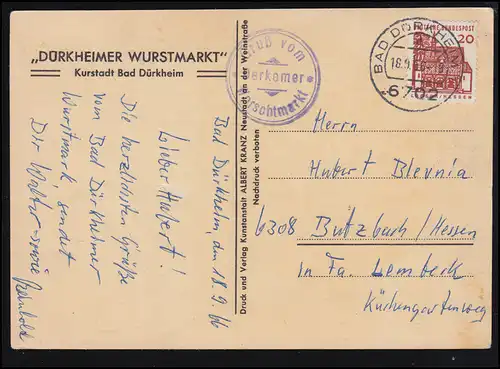 „DÜRKHEIMER WURSTMARKT"
Kurstadt Bad Dürkheim
Bad Dürkheim, den 18.9.66
Lieber Hubert!
Die herzlichsten Grüße
vom Bad Dürkheimer
Wurstmark, sendet
Dir Walter sowie
Reinhold
Druck und Verlag Kunstanstalt ALBERT KRANZ Neustadt an der Weinstraße
Nachdruck verboten
Gruß vom
Derkemer
Worschtmarkt
BAD DÜRKHEIM
18.9.
6702
DEUTSCHE BUNDESPOST
20
HESSEN
Herrn
Hubert Blevnia
6308 Butzbach/Hessen
in Fa. Lembeck